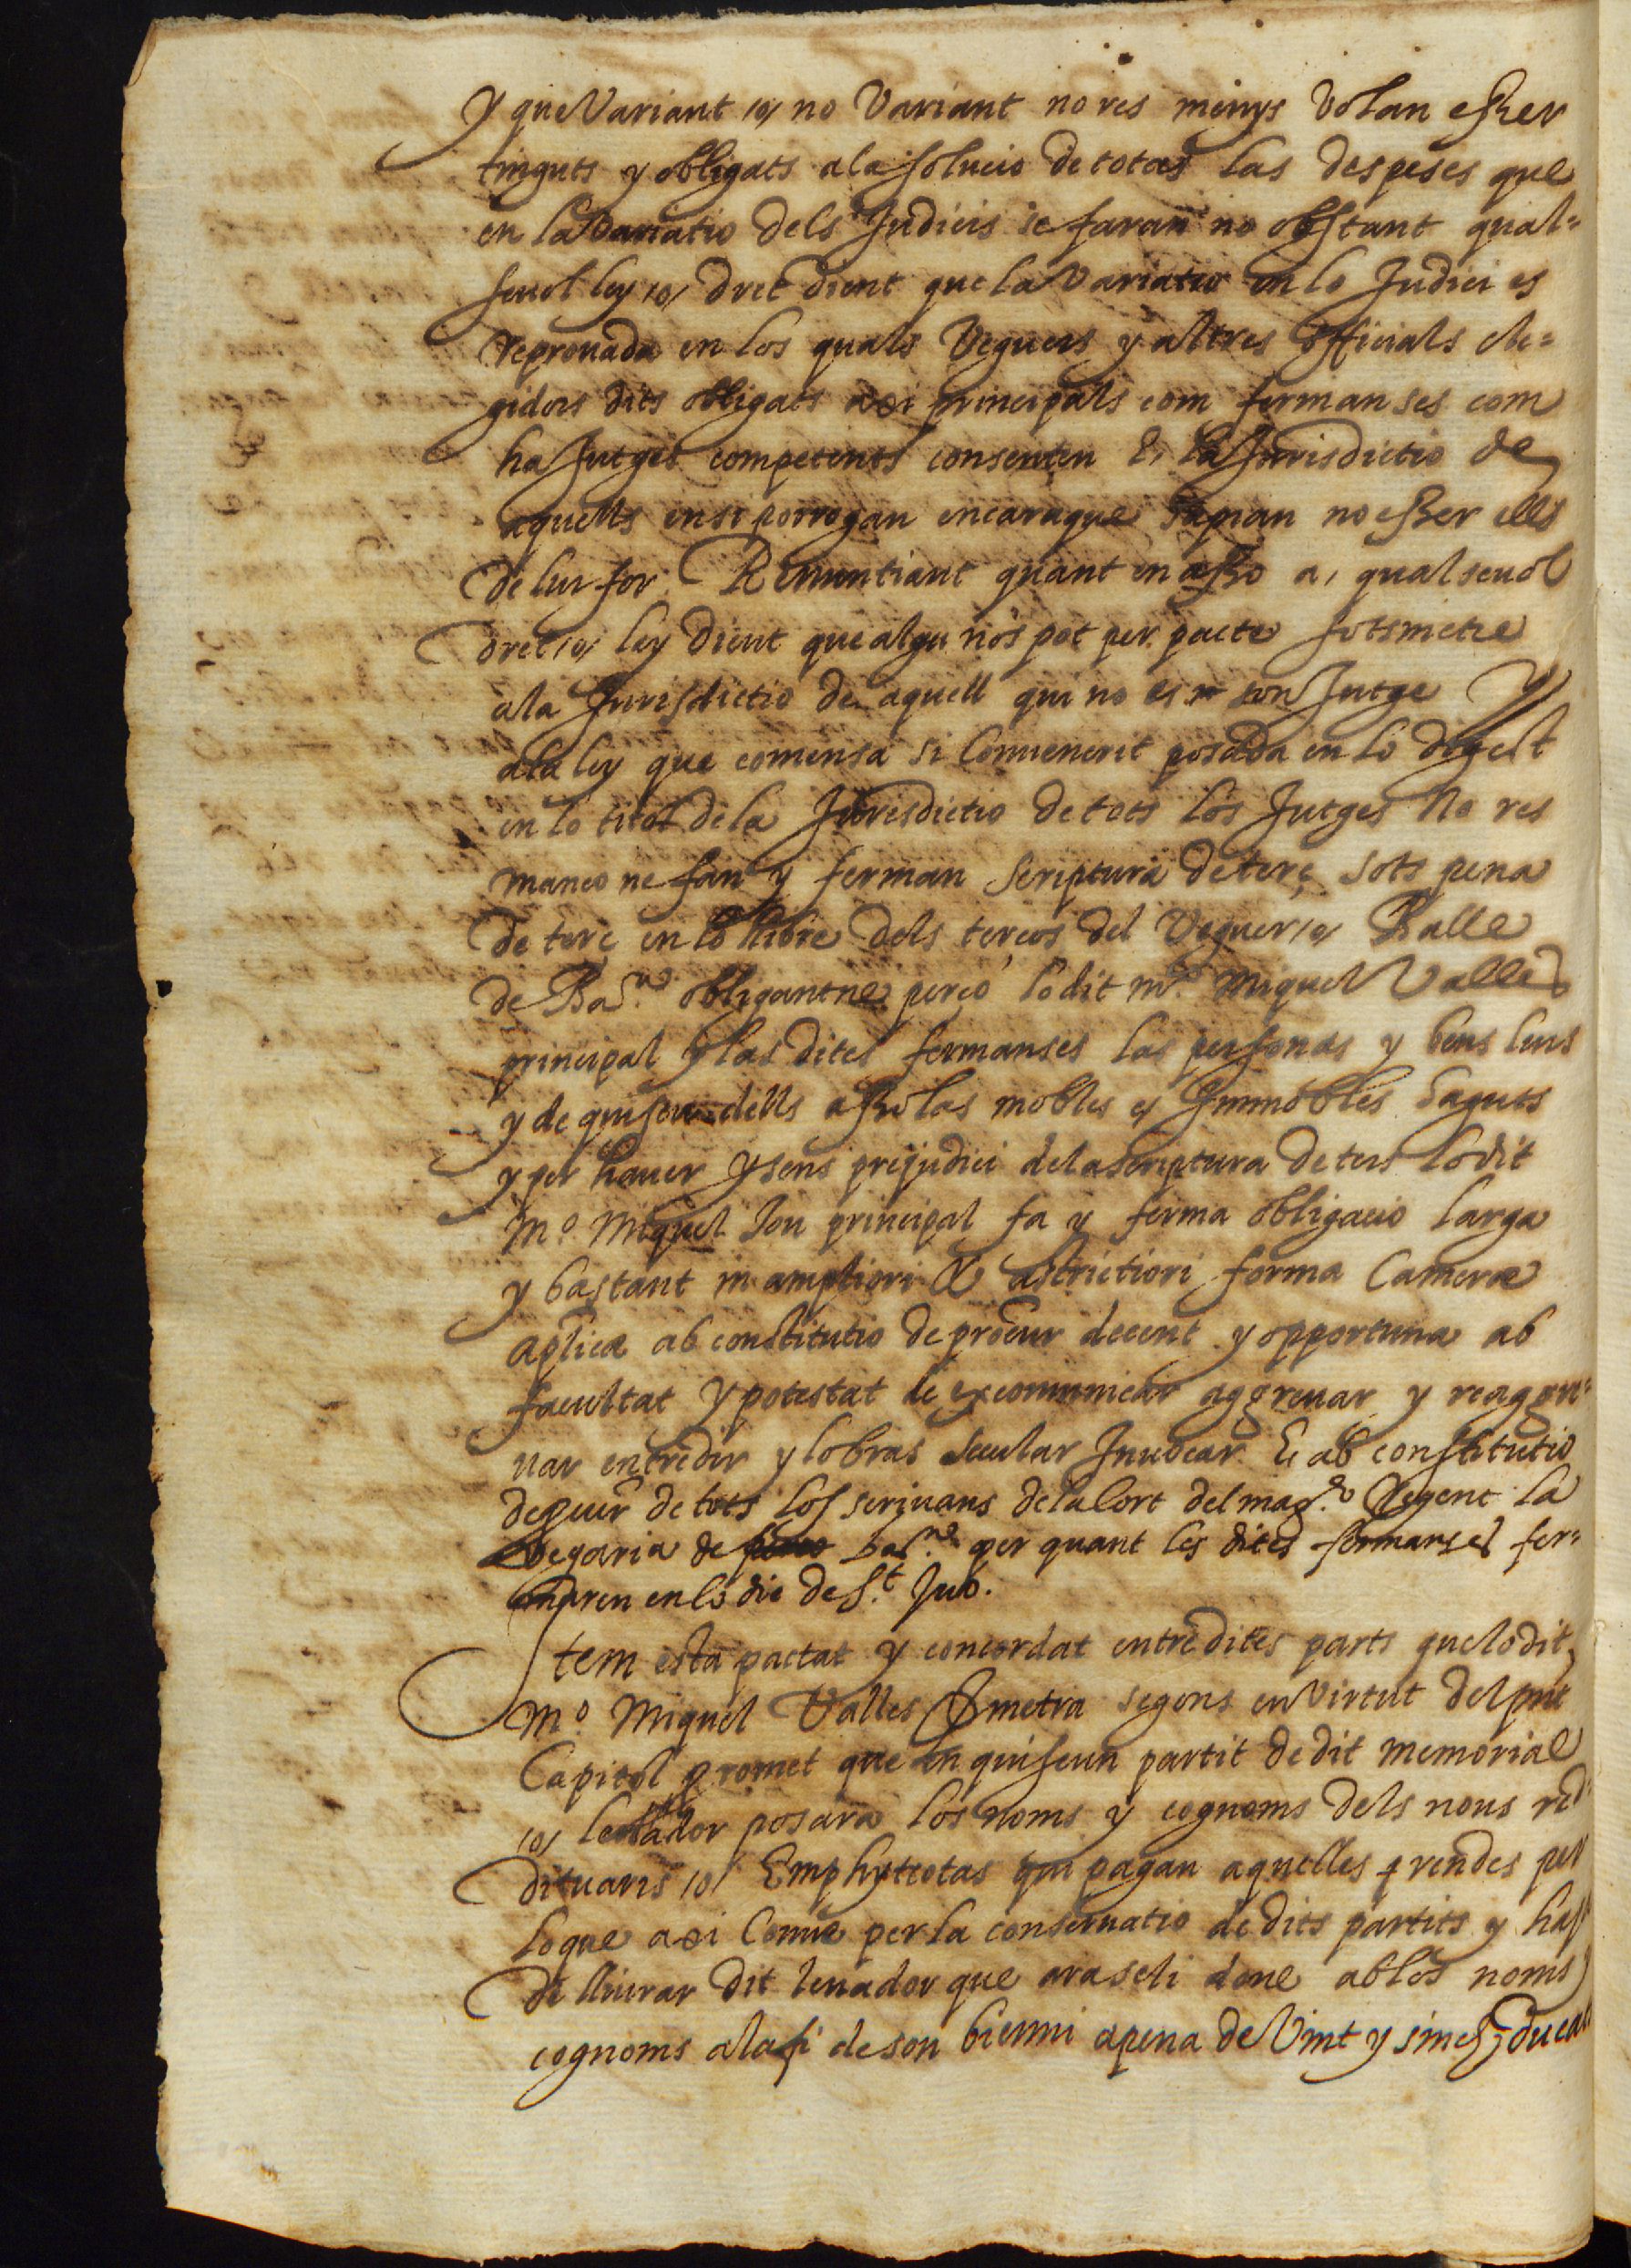 y que Variant /o/ no Variant no res menys Volan esser
tinguts y obligats a la solucio de totas las despeses que
en la Variatio dels Judicis se faran no obstant qual=
seuol ley /o/ dret dient que la Variatio en lo Judici es
reprouada en los quals Veguers y altres officials ele=
gidors dits obligats axi principals com fermanses com
ha Jutges competents consenten E, la Jurisdictio de
aquells en si porrogan encaraque sapian no esser ells
de lur for. Renuntiant quant en asso a, qualseuol
dret /o/ ley dient que algu nos pot per pacte sotsmetre
a la Jurisdictio de aquell qui no es son Jutge Y
a la ley que comensa si Conuenerit posada en lo digest
en lo titol de la Jurisdictio de tots los Jutges No res
manco ne fan y ferman scriptura de terç sots pena
de terç en lo llibre dels tercos del Veguer /o/ Balle
de Bar.na obligantne perço lo dit m.o Miquel Valles
principal y las dites fermanses las personas y bens lurs
y de quiseun dells assolas mobles e, Immobles haguts
y per hauer y sens prejudici de la scriptura de ters lo dit
M.o Miquel Jou principal fa y ferma obligacio larga
y bastant in ampliori & astrictiori forma Cameræ
aplicæ ab constitutio de procur decent y opportuna ab
facultat y potestat de excomunicar aggreuar y reaggre=
uar entredir y lo bras secular Inuocar. E, ab constitutio
de pcur de tots los scriuans de la Cort del mag.ch Regent la
Vegaria de Bar.na per quant les dites fermanses fer=
maren en lo die de S.t Juo.
Item esta pactat y concordat entre dites parts que lo dit
M.o Miquel Valles pmetra segons en Virtut del pnt
Capitol promet que en quiseun partit de dit memorial
/o/ leuador posara los noms y cognoms dels nous red=
dituaris /o/ Emphyteotas qui pagan aquelles rendes per
lo que axi Conue per la conseruatio de dits partits y haja
de lliurar dit leuador que ara seli done ab los noms y
cognoms a la fi de son bienni a pena de Vint y sinch ducats